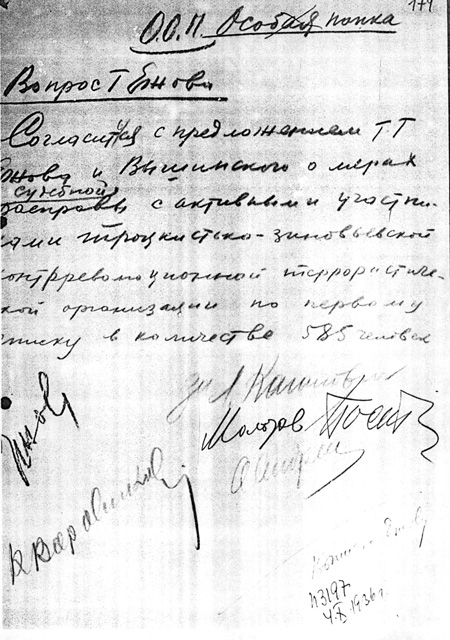 171
О.О.П. Особая папка
Вопрос Т Ежова
Согласиться с предложением Т.Т
Ежова и Вышинского о мерах
судебной
расправы с активными участни-
ками троцкистско-зиновьевской
контрреволюционной террористиче-
ской организации по первому
списку в количестве 585 человек
за Л Каганович
Молотов Посты
Ежов
А Андреев
К Ворошилов
П3197
4.X.1936 г.